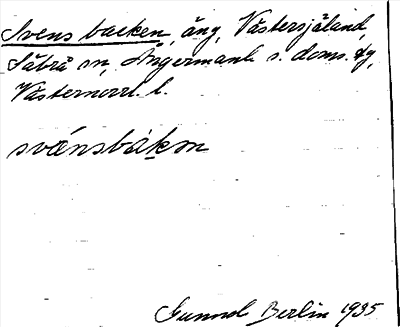 Svens backen, äng, Västersjäland,
Säbrå sn, Ångermanl. s. doms. dg,
Västernorrl. l.
svænsbákɐn
Gunnel Berlin 1935